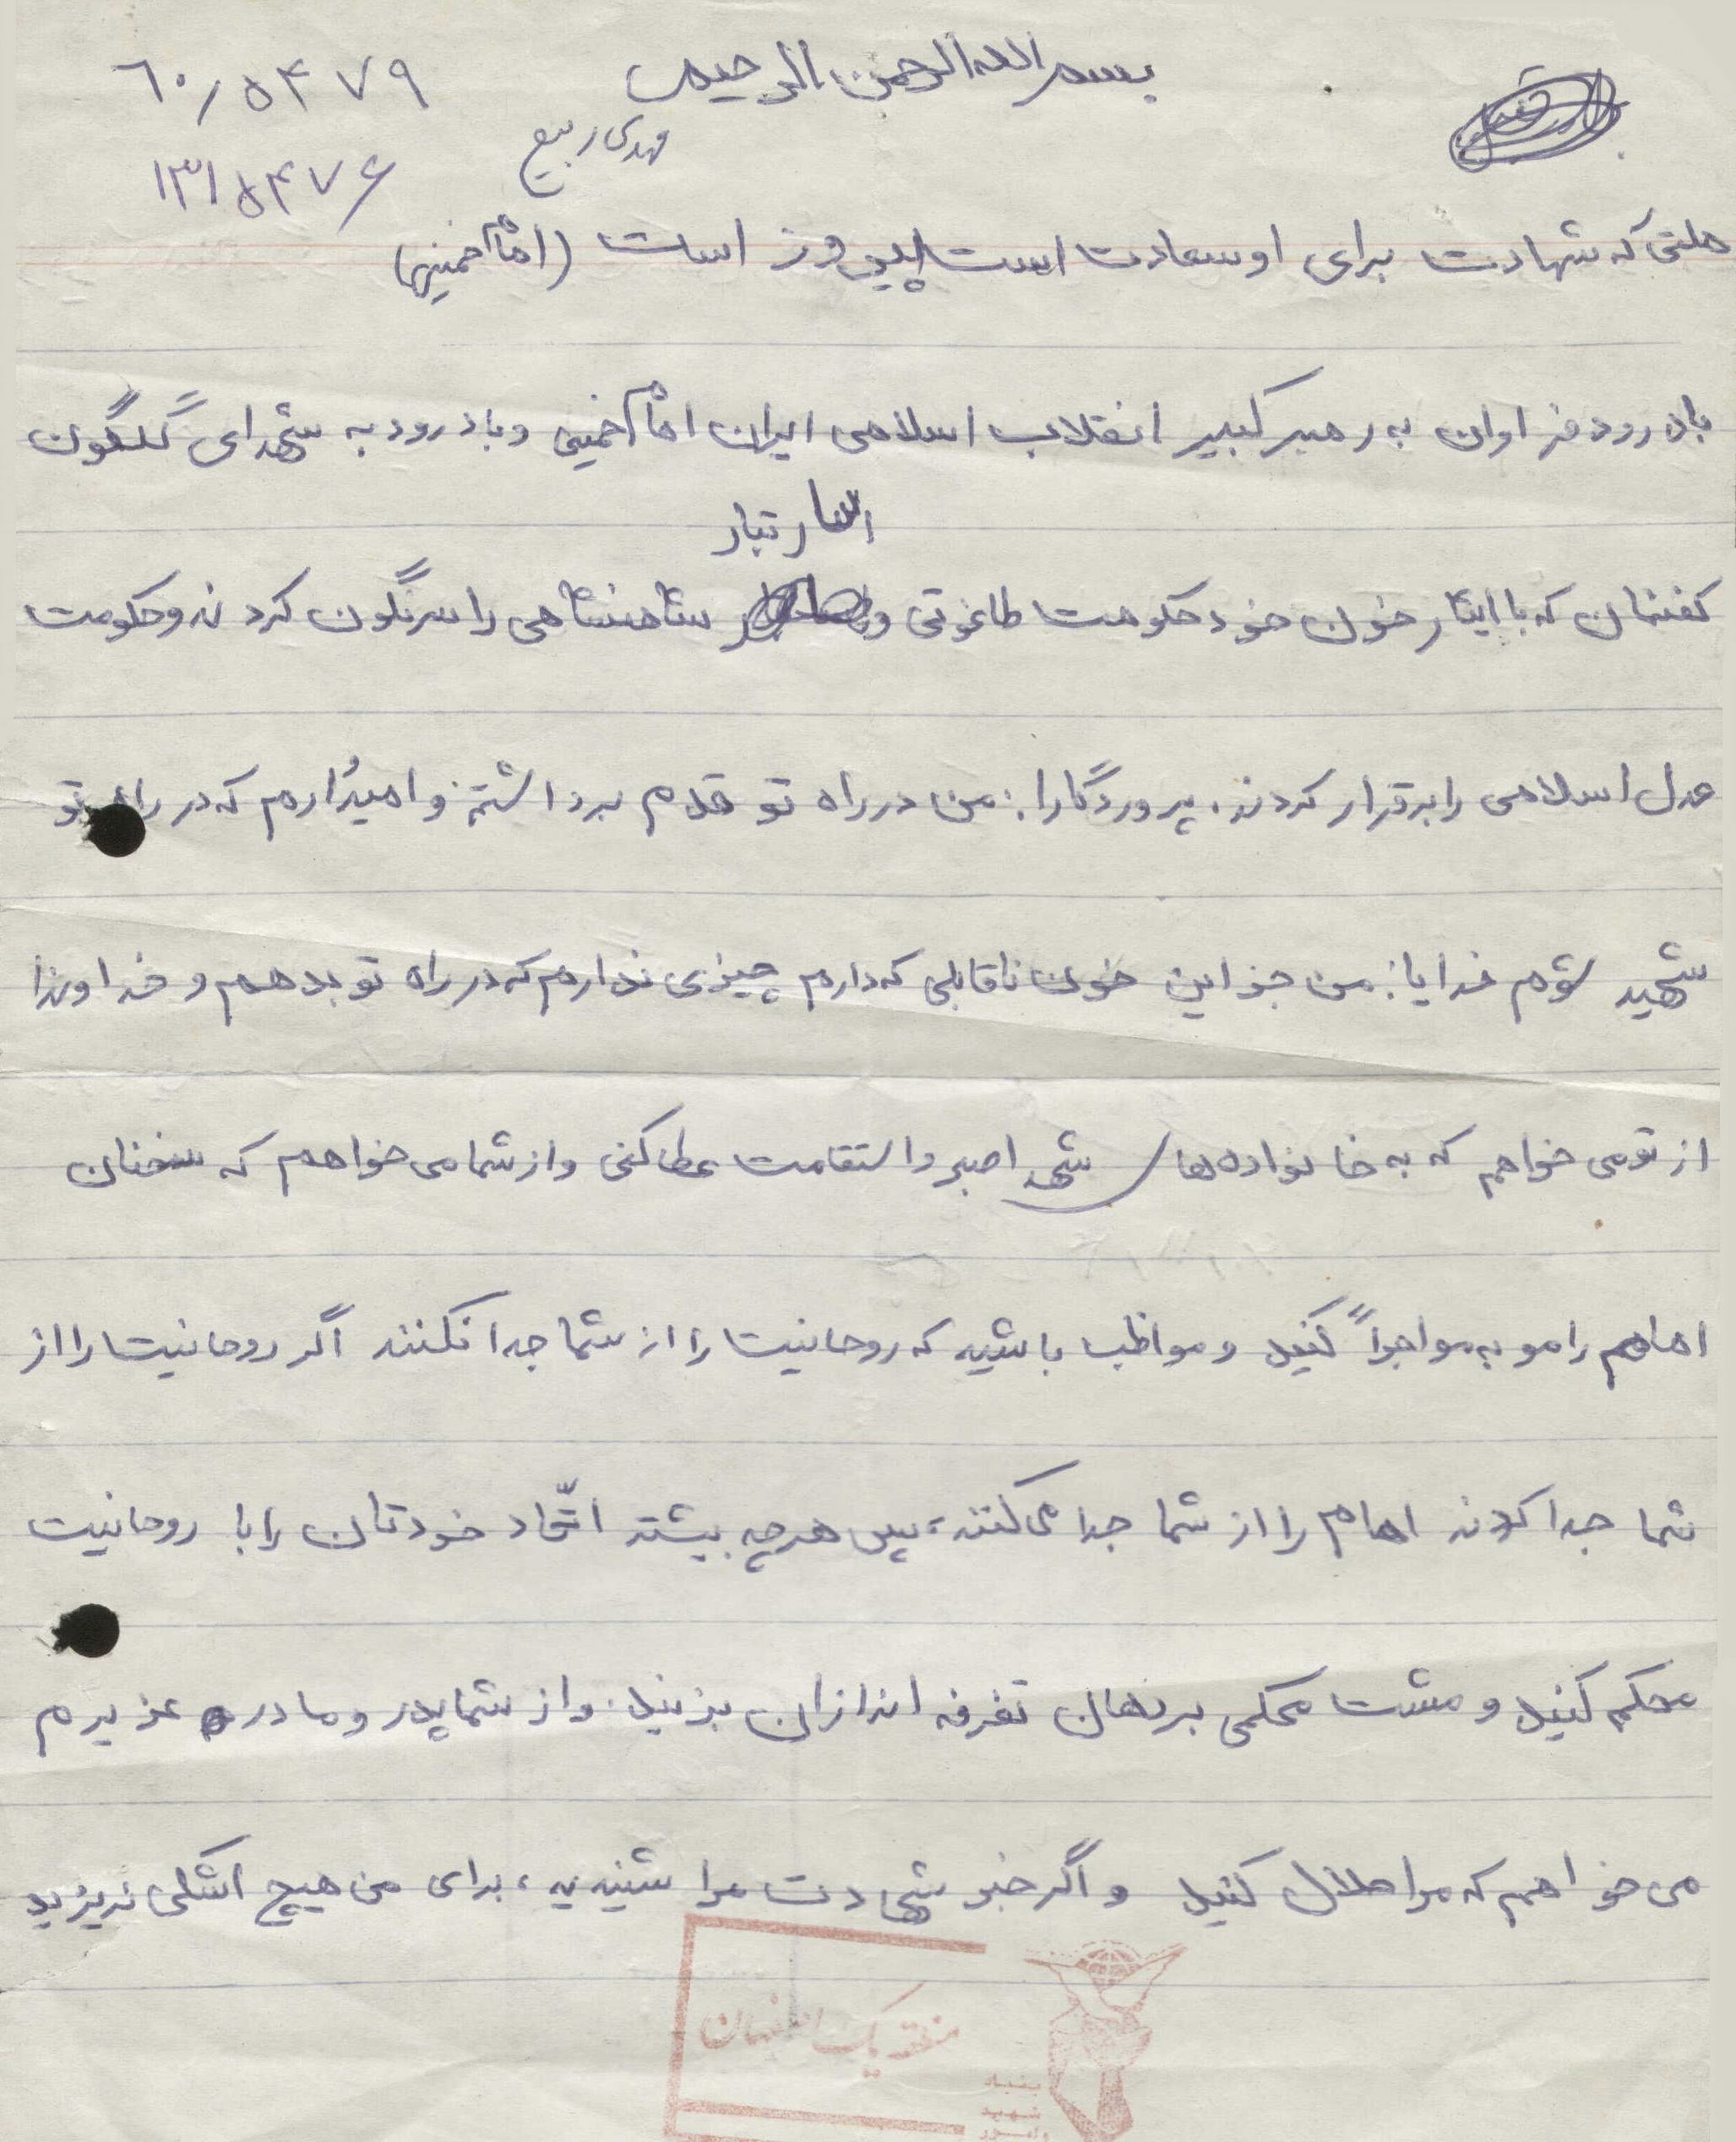 بسم الله الرحمن الرحیم
۶۰/۵۴۷۹
مهدی ربیع
۱۳۱۵۴۷۶
ملتی که شهادت برای او سعادت است پیروز است (امام خمینی)
با درود فراوان به رهبر کبیر انقلاب اسلامی ایران امام خمینی و با درود به شهدای گلگون
تبار
کفنمان که با ایثار خون خود حکومت طاغوتی و شاهنشاهی را سرنگون کردند و حکومت
عدل اسلامی را برقرار کردند. پروردگارا: من در راه تو قدم برداشته و امیدوارم که در راه تو
شهید شوم خدایا: من جز این خون ناقابلی که دارم چیزی ندارم که در راه تو بدهم و خداوندا
از تو می خواهم که به خانواده های شهدا صبر و استقامت عطا کنی و از شما می خواهم که سخنان
امام را مو به مو اجراً کنید و مواظب باشید که روحانیت را از شما جدا نکنند اگر روحانیت را از
شما جدا کردند امام را از شما جدا می کنند، پس هرچه بیشتر اتّحاد خودتان را با روحانیت
محکم کنید و مشت محکمی بر دهان تفرقه اندازان بزنید. و از شما پدر و مادر عزیرم
می خواهم که مرا حلال کنید و اگر خبر شهادت مرا شنیدید، برای من هیچ اشکی نریزید
منطقه یک اصفهان
بنیاد
شهید